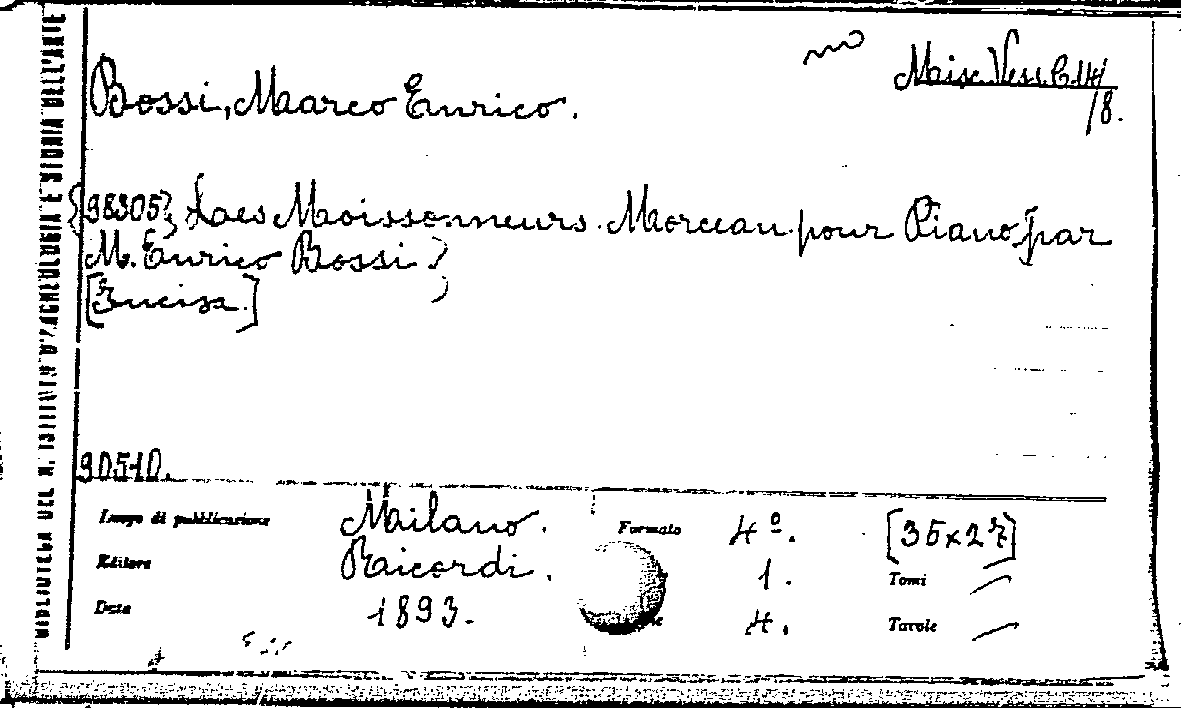 Bossi, Marco Enrico.
Misc. Vess. C. 14/
/8.
{98305} Les Moissonneurs. Morceau pour Piano, par
M. Enrico Bossi.
[Incisa.]
90510.
Luogo di pubblicazione Milano. Formato 4º. [35x27]
Editore Ricordi. 1. Tomi
Data 1893. 4. Tavole
BIBLIOTECA DEL R. ISTITUTO D'ARCHEOLOGIA E STORIA DELL'ARTE